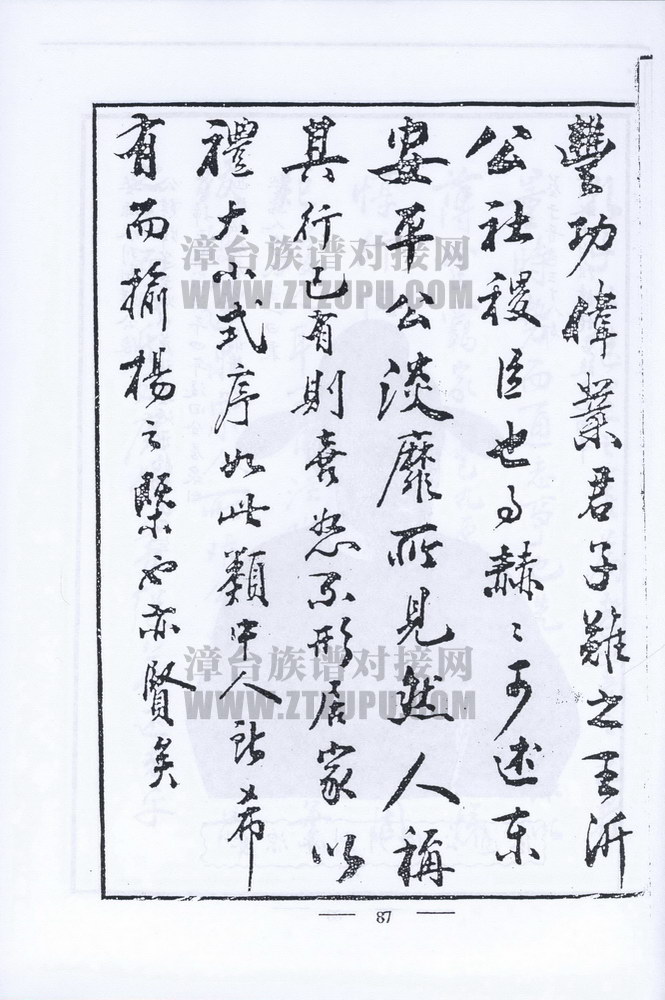 豐功偉業君子難之王沂
公社稷臣也事赫赫可述東
安平公淡靡所見然人稱
其行已有則喜怒不形居家以
禮大小式序如此類中人所希
有而揄楊之槩也亦賢矣
漳台族谱对接网
WWW.ZTZUPU.COM
漳台族谱对接网
WWW.ZTZUPU.COM
— 87 —